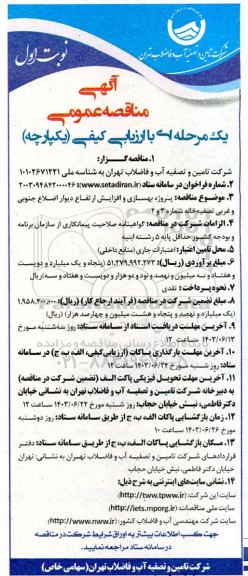 شرکت تامین و تصفیه آب و فاضلاب تهران
نوبت اول
آگهی
مناقصه عمومی
یک مرحله ای با ارزیابی کیفی (یکپارچه)
۱. مناقصه گزار:
شرکت تامین و تصفیه آب و فاضلاب تهران به شناسه ملی ۱۰۱۰۲۶۷۱۲۲۱
۲. شماره فراخوان در سامانه ستاد (www.setadiran.ir): ۲۰۰۳۰۹۴۸۴۲۰۰۰۰۴۶
۳. موضوع مناقصه: پروژه بهسازی و افزایش ارتفاع دیوار اضلاع جنوبی
و غربی تصفیه خانه شماره ۳ و ۴
۴. الزامات شرکت در مناقصه: گواهینامه صلاحیت پیمانکاری از سازمان برنامه
و بودجه کشور حداقل پایه ۵ رشته ابنیه
۵. محل تامین اعتبار: اعتبارات جاری (منابع داخلی)
۶. مبلغ برآوردی (ریال): ۵۱,۲۷۹,۹۹۲,۲۷۳ (پنجاه و یک میلیارد و دویست
و هفتاد و نه میلیون و نهصد و نود و دو هزار و دویست و هفتاد و سه) ریال
۷. نحوه پرداخت: نقدی
۸. مبلغ تضمین شرکت در مناقصه (فرآیند ارجاع کار) (ریال): ۱,۹۵۸,۴۰۰,۰۰۰
(یک میلیارد و نهصد و پنجاه و هشت میلیون و چهارصد هزار) ریال
۹. آخرین مهلت دریافت اسناد از سامانه ستاد: روز سه شنبه مورخ
۱۴۰۳/۰۶/۱۳ ساعت ۱۲
۱۰. آخرین مهلت بارگذاری پاکات (ارزیابی کیفی، الف، ب، ج) در سامانه
ستاد: روز شنبه مورخ ۱۴۰۳/۰۶/۲۴ ساعت ۱۲
۱۱. آخرین مهلت تحویل فیزیکی پاکت الف (تضمین شرکت در مناقصه)
به دبیرخانه شرکت تامین و تصفیه آب و فاضلاب تهران به نشانی خیابان
دکتر فاطمی، نبش خیابان حجاب: روز شنبه مورخ ۱۴۰۳/۰۶/۲۴ ساعت ۱۲
۱۲. زمان بازگشایی پاکات الف، ب، ج از طریق سامانه ستاد: روز دوشنبه
مورخ ۱۴۰۳/۰۶/۲۶ ساعت ۱۰
۱۳. مکان بازگشایی پاکات الف، ب، ج از طریق سامانه ستاد: دفتر
قراردادهای شرکت تامین و تصفیه آب و فاضلاب تهران به نشانی: تهران
خیابان دکتر فاطمی، نبش خیابان حجاب
۱۴. نشانی سایت های اینترنتی به شرح ذیل:
سایت این شرکت: (http://tww.tpww.ir)
سایت ملی مناقصات: (http://iets.mporg.ir)
سایت شرکت مهندسی آب و فاضلاب کشور: (http://www.nww.ir)
جهت کسب اطلاعات بیشتر به اوراق شرایط شرکت در مناقصه
در سامانه ستاد مراجعه نمایید.
شرکت تامین و تصفیه آب و فاضلاب تهران (سهامی خاص)